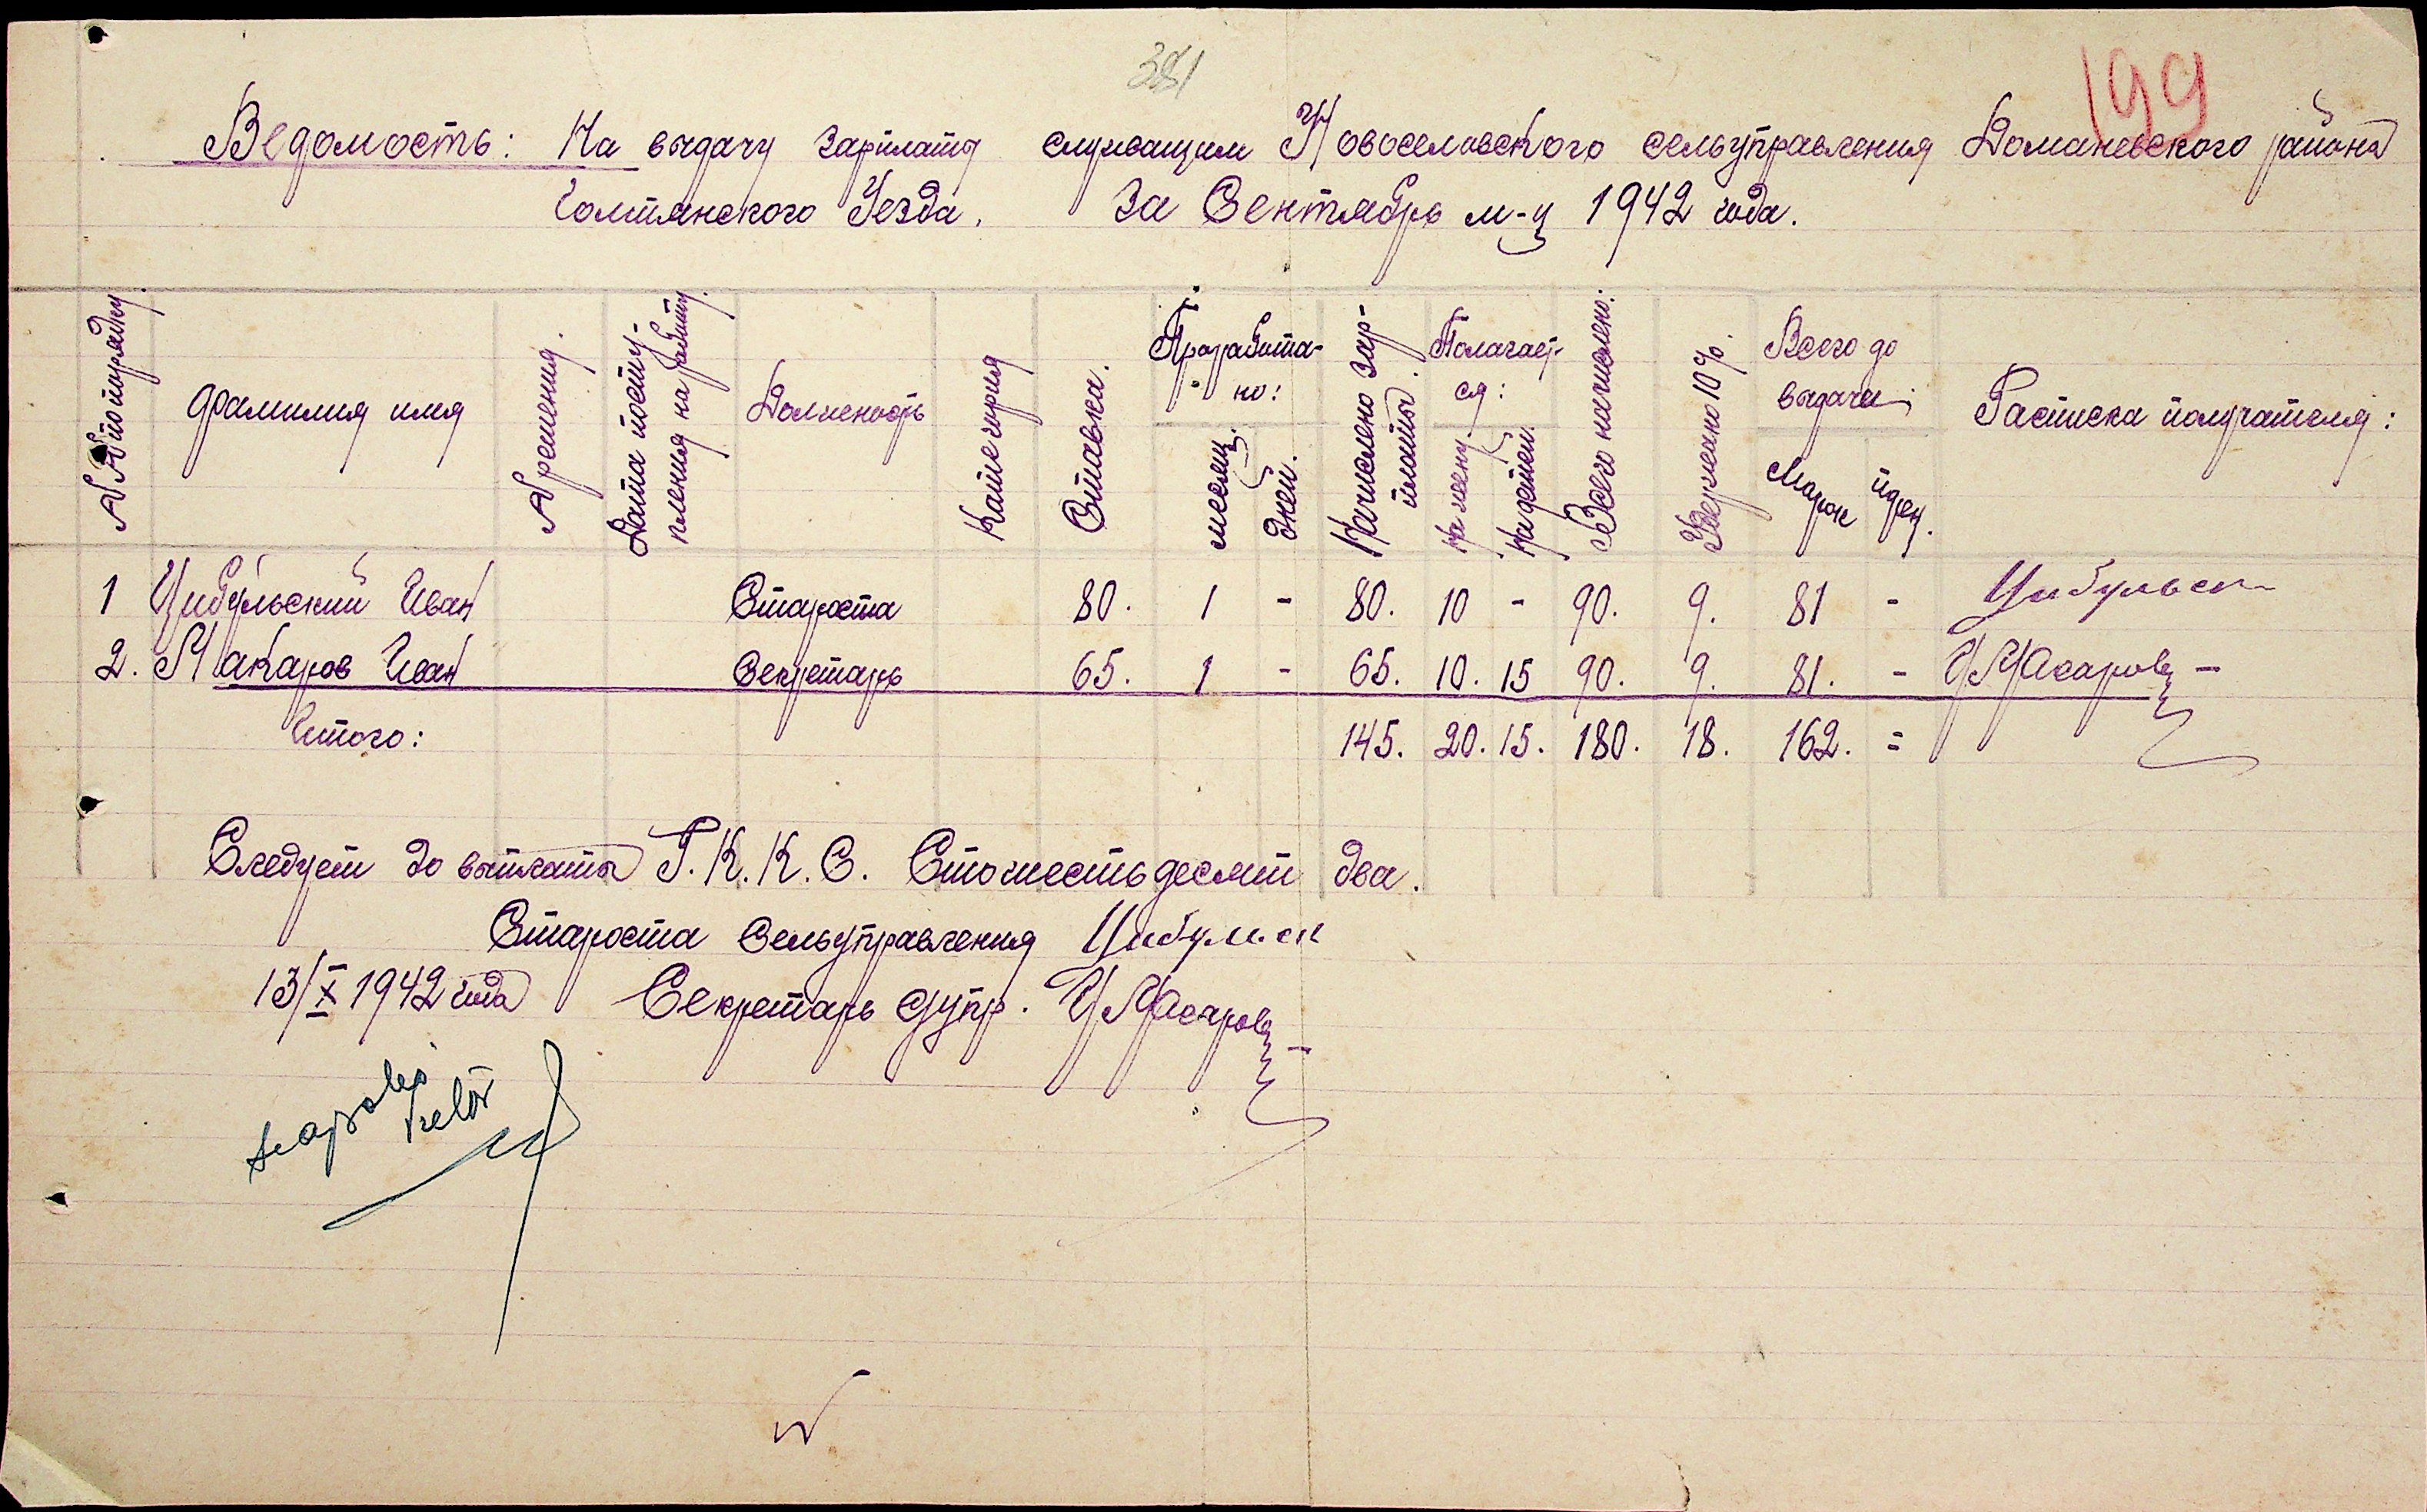 381
199
Ведомость: На выдачу зарплаты служащим Новоселовского сельуправления Доманевского района
Голтянского Уезда. За Сентябрь м-ц 1942 года.
№№ по порядку.
фамилия имя
Дата поступ-
ления на работу.
Должность
Категория
Ставка.
Проработа-
но:
месяц.
дней.
Начислено зар-
платы.
Полагает-
ся:
на жену.
на детей.
Всего начислено:
Удержано 10%.
Всего до
выдачи:
Марок
пфен.
Расписка получателя:
1 Цибульский Иван Староста 80. 1 - 80. 10 - 90. 9. 81 - Цибульск
2. Макаров Иван Секретарь 65. 1 - 65. 10. 15 90. 9. 81. - И Макаров
Итого: 145. 20. 15. 180. 18. 162. =
Следует до выплаты Г.К.К.С. Стошестьдесят два.
Староста Сельуправления Цибульск
13/X 1942 года Секретарь с/упр. И Макаров